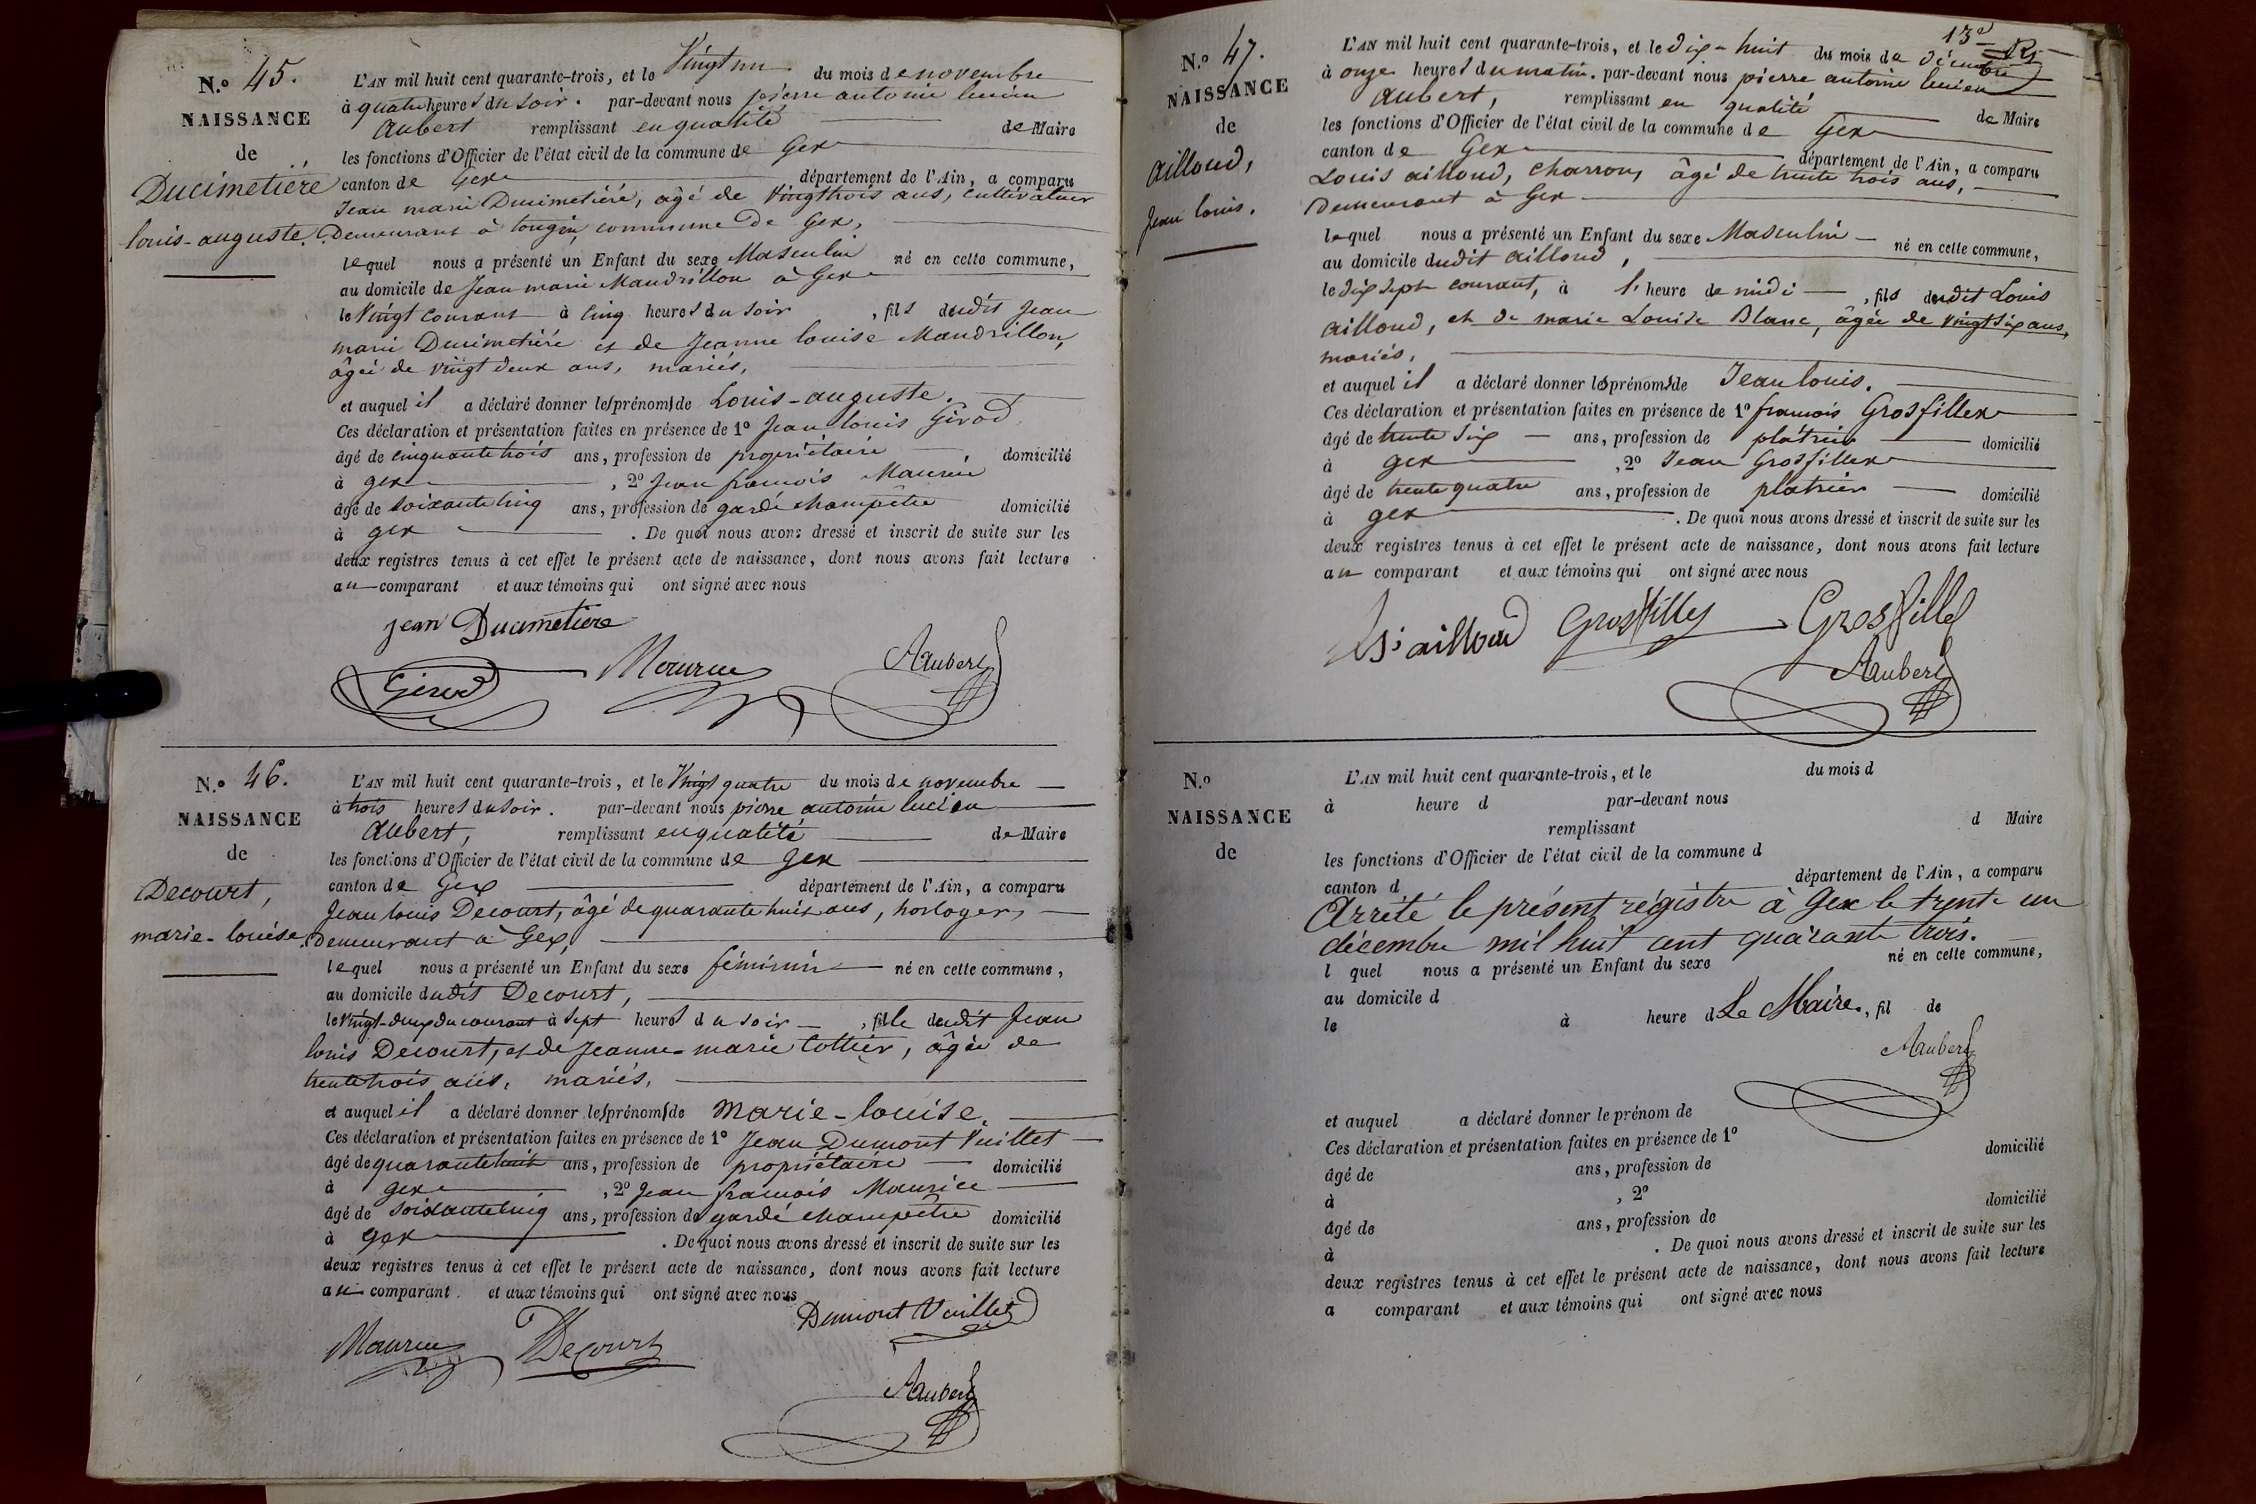 N.º 45.
NAISSANCE
de
Ducimetière
louis-auguste.
L'AN mil huit cent quarante-trois, et le Vingt un du mois de novembre
à quatre heures du soir. par-devant nous pierre antoine lucien
Aubert remplissant en qualité de Maire
les fonctions d'Officier de l'état civil de la commune de Gex
canton de Gex département de l'Ain, a comparu
Jean marie Ducimetière, âgé de Vingt trois ans, cultivateur
Demeurant à tougin, commune De Gex,
lequel nous a présenté un Enfant du sexe Masculin né en cette commune,
au domicile de Jean marie Mandrillon à Gex
le Vingt courant à cinq heures du soir, fils dudit Jean
marie Ducimetière et de Jeanne louise Mandrillon,
âgée de vingt deux ans, mariés,
et auquel il a déclaré donner les prénoms de Louis-auguste.
Ces déclaration et présentation faites en présence de 1º Jean louis Girod
âgé de cinquante trois ans, profession de propriétaire domicilié
à gex, 2º Jean françois Maurice
âgé de soixante cinq ans, profession de garde champêtre domicilié
à gex. De quoi nous avons dressé et inscrit de suite sur les
deux registres tenus à cet effet le présent acte de naissance, dont nous avons fait lecture
au comparant et aux témoins qui ont signé avec nous
jean Ducimetiere
Girod Maurice Aubert
N.º 46.
NAISSANCE
de
Decourt,
marie-louise.
L'AN mil huit cent quarante-trois, et le Vingt quatre du mois de novembre
à trois heures du soir. par-devant nous pierre antoine lucien
Aubert, remplissant en qualité de Maire
les fonctions d'Officier de l'état civil de la commune de gex
canton de Gex département de l'Ain, a comparu
Jean louis Decourt, âgé de quarante huit ans, horloger,
Demeurant à Gex,
lequel nous a présenté un Enfant du sexe féminin né en cette commune,
au domicile dudit Decourt,
le Vingt-deux du courant à sept heures du soir, fille dudit Jean
louis Decourt, et de Jeanne-marie Cottier, âgée de
trente trois ans, mariés,
et auquel il a déclaré donner les prénoms de Marie-louise.
Ces déclaration et présentation faites en présence de 1º Jean Dumont Vuillet
âgé de quarante huit ans, profession de propriétaire domicilié
à gex, 2º Jean françois Maurice
âgé de soixante cinq ans, profession de garde champêtre domicilié
à gex. De quoi nous avons dressé et inscrit de suite sur les
deux registres tenus à cet effet le présent acte de naissance, dont nous avons fait lecture
au comparant et aux témoins qui ont signé avec nous
Dumont Vuillet
Maurice Decourt
Aubert
13e
N.º 47.
NAISSANCE
de
Ailloud,
Jean louis.
L'AN mil huit cent quarante-trois, et le dix-huit du mois de décembre
à onze heures du matin. par-devant nous pierre antoine lucien
Aubert, remplissant en qualité de Maire
les fonctions d'Officier de l'état civil de la commune de Gex
canton de Gex département de l'Ain, a comparu
Louis ailloud, charron, âgé de trente trois ans,
Demeurant à Gex
lequel nous a présenté un Enfant du sexe Masculin né en cette commune,
au domicile dudit ailloud,
le dix sept courant, à l' heure de midi, fils dudit Louis
ailloud, et de marie Louise Blanc, âgée de Vingt six ans,
mariés,
et auquel il a déclaré donner les prénoms de Jean louis.
Ces déclaration et présentation faites en présence de 1º françois Grosfillex
âgé de trente six ans, profession de plâtrier domicilié
à gex, 2º Jean Grosfillex
âgé de trente quatre ans, profession de platrier domicilié
à gex. De quoi nous avons dressé et inscrit de suite sur les
deux registres tenus à cet effet le présent acte de naissance, dont nous avons fait lecture
au comparant et aux témoins qui ont signé avec nous
ailloud Grosfillex Grosfillex
Aubert
N.º
NAISSANCE
de
L'AN mil huit cent quarante-trois, et le du mois d
à heure d par-devant nous
remplissant d Maire
les fonctions d'Officier de l'état civil de la commune d
canton d département de l'Ain, a comparu
Arrêté le présent régistre à Gex le trente un
décembre mil huit cent quarante trois.
l quel nous a présenté un Enfant du sexe né en cette commune,
au domicile d
le à heure d Le Maire, fil de
Aubert
et auquel a déclaré donner le prénom de
Ces déclaration et présentation faites en présence de 1º
âgé de ans, profession de domicilié
à , 2º
âgé de ans, profession de domicilié
à . De quoi nous avons dressé et inscrit de suite sur les
deux registres tenus à cet effet le présent acte de naissance, dont nous avons fait lecture
a comparant et aux témoins qui ont signé avec nous